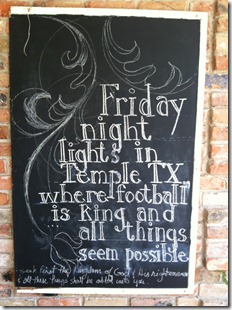 Friday
night
lights in
Temple TX
where football
is King and
all things
seem possible
seek first the Kingdom of God & His righteousness
& all these things shall be added unto you